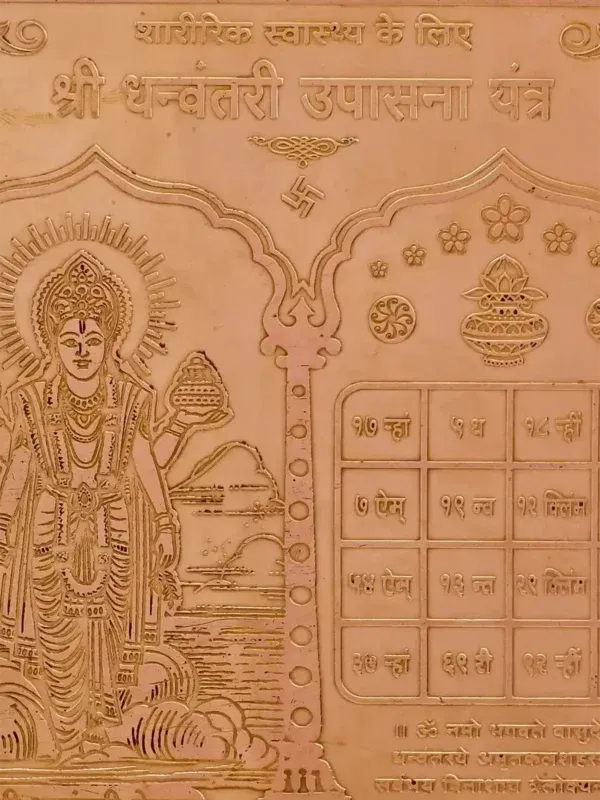 शारीरिक स्वास्थ्य के लिए
श्री धन्वंतरी उपासना यंत्र
१७ न्हां ५ ध १८ न्हीं
७ ऐम् १९ न्व १२ क्लिंम
५४ ऐम् १३ न्त २९ क्लिंम
३७ न्हां ६९ री ९२ न्हीं
॥ ॐ नमो भगवते वासुदे
धन्वन्तरये अमृतकलशहस्त
सर्वभय विनाशाय त्रैलोक्यन